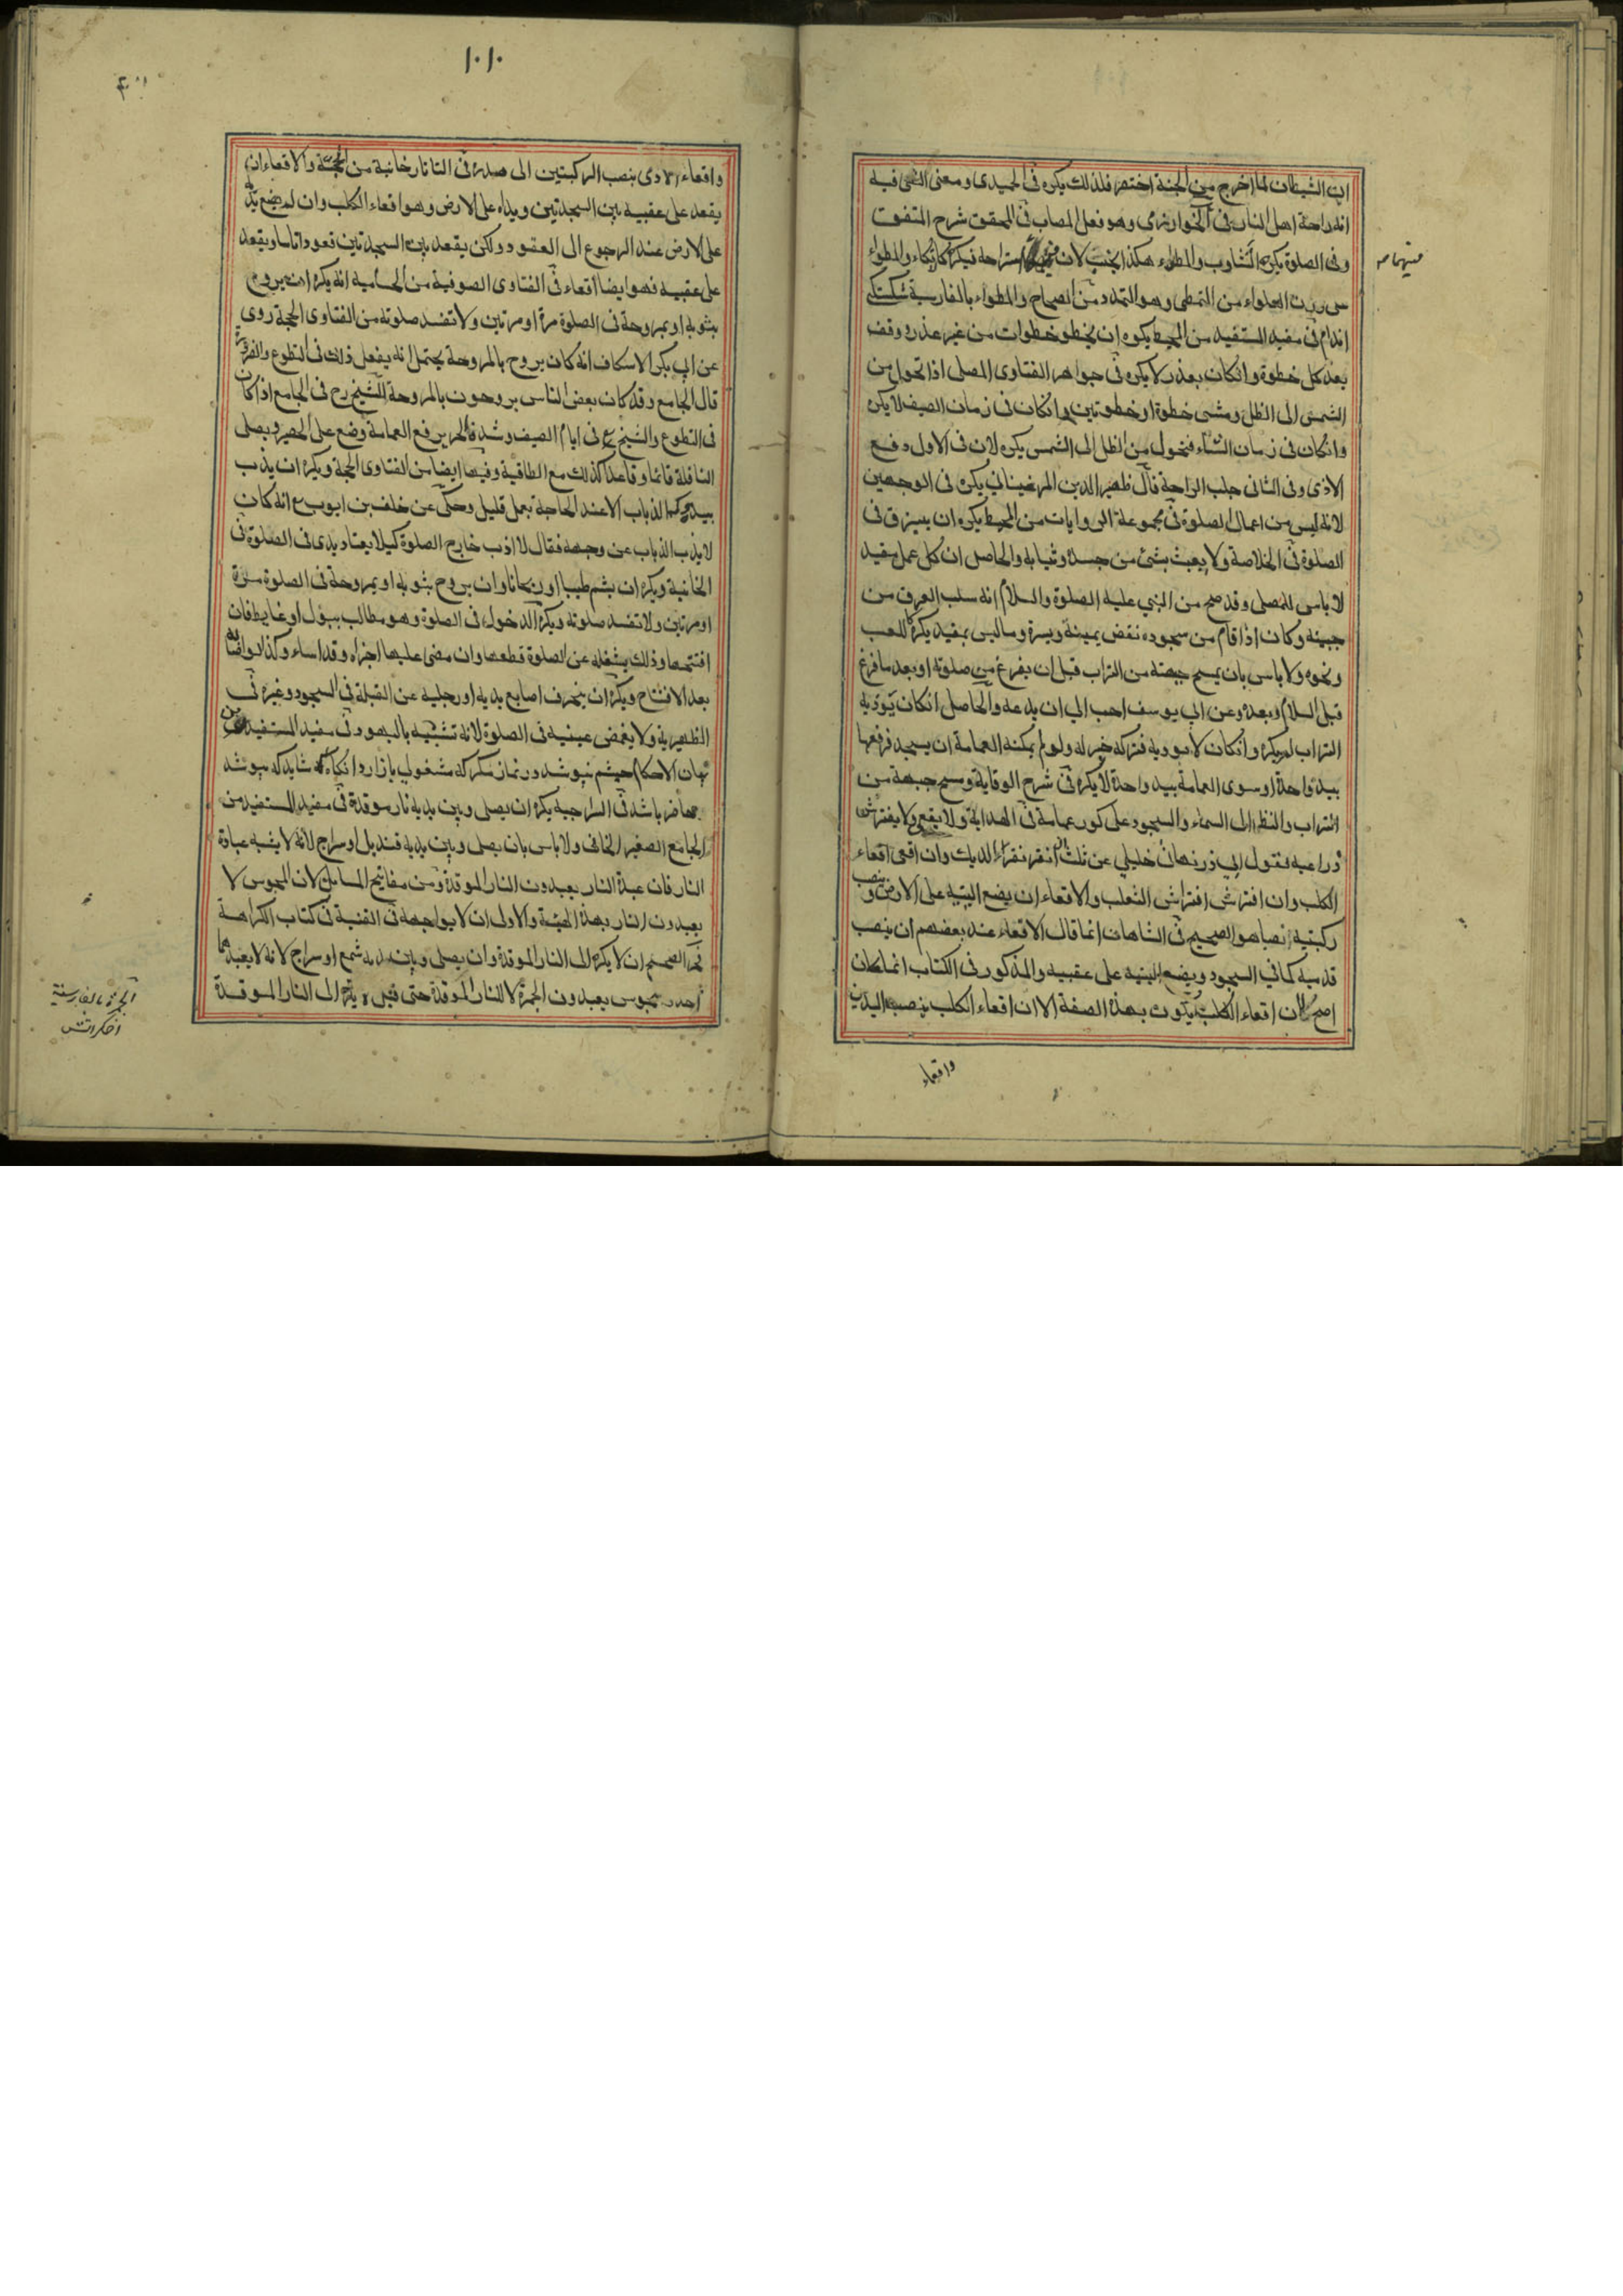 ان الشيطان لما اخرج من الجنة اختصر فلذلك يكره فى الحميدى ومعنى النهى فيه
انه راحة اهل النار فى الخوارزمى وهو فعل المصاب فى المحقق شرح المتفق
وفى الصلوة يكره التثاوب والمطواء هكذا لانه استراحة فيكره كالاتكاء والمطواء
من التمطى وهو التمدد من الصحاح والمطواء بالفارسية شكستكى
اندام فى مفيد المستفيد من المحيط يكره ان يخطو خطوات من غير عذر ووقف
بعد كل خطوة وانكان بعذر لا يكره فى جواهر الفتاوى المصلى اذا تحول من
الشمس الى الظل ومشى خطوة او خطوتين وانكان فى زمان الصيف لا يكره
وانكان فى زمان الشتاء فتحول من الظل الى الشمس يكره لان فى الاول دفع
الاذى وفى الثانى جلب الراحة قال ظهير الدين المرغينانى يكره فى الوجهين
لانه ليس من اعمال الصلوة فى مجموعة الروايات من المحيط يكره ان يبزق فى
الصلوة فى الخلاصة ولا يعبث بشئ من جسده وثيابه والحاصل ان كل عمل مفيد
لا باس للمصلى وقد صح من النبي عليه الصلوة والسلام انه سلب العرق من
جبينه وكان اذا قام من سجوده نفض يمينة ويسرة وما ليس بمفيد يكره كاللعب
ونحوه ولا باس بان يمسح جبهته من التراب قبل ان يفرغ من صلوته او بعد ما فرغ
قبل السلام وبعده وعن ابي يوسف احب الي ان يدعه والحاصل انكان يؤذيه
التراب لم يكره وانكان لا يوديه فتركه خير له ولو لم يمكنه العمامة ان يسجد فرفعها
بيد واحدة او سوى العمامة بيد واحدة لا يكره فى شرح الوقاية ومسح جبهته من
التراب والنظر الى السماء والسجود على كور عمامته فى الهداية ولا يقعى ولا يفترش
ذراعيه لقول ابي ذر نهانى خليلي عن ثلث ان انقر نقر الديك وان اقعى اقعاء
الكلب وان افترش افتراش الثعلب والاقعاء ان يضع اليتيه على الارض وينصب
ركبتيه نصبا هو الصحيح فى الشاهان انما قال الاقعاء عند بعضهم ان ينصب
قدميه كما في السجود ويضع اليتيه على عقبيه والمذكور فى الكتاب انما كان
اصح لان اقعاء الكلب يكون بهذه الصفة الا ان اقعاء الكلب ينصب اليدين
واقعاء
١٠١٠
واقعاء الادمى بنصب الركبتين الى صدره فى التاتارخانية من الحجة والاقعاء ان
يقعد على عقبيه بين السجدتين ويداه على الارض وهو اقعاء الكلب وان لم يضع يديه
على الارض عند الرجوع الى العقود ولكن يقعد بين السجدتين قعودا تاما ويقعد
على عقبيه فهو ايضا اقعاء فى الفتاوى الصوفية من الحسامية انه يكره ان يروح
بثوبه او بمروحة فى الصلوة مرة او مرتين ولا تفسد صلوته من الفتاوى الحجة روى
عن ابى بكر الاسكاف انه كان يروح بالمروحة يحتمل انه يفعل ذلك فى التطوع
قال الجامع وقد كان بعض الناس يروحون بالمروحة الشيخ رح فى الجامع اذا كان
فى التطوع والشيخ فى ايام الصيف وشدة الحر يرفع العمامة وضع على الحصير ويصلى
النافلة قائما وقاعدا كذلك مع الطاقية وفيها ايضا من الفتاوى الحجة ويكره ان يذب
بيده الذباب الا عند الحاجة بعمل قليل وحكى عن خلف بن ايوب انه كان
لا يذب الذباب عن وجهه فقال لا اذب خارج الصلوة كيلا يعتاد يدى فى الصلوة فى
الخانية ويكره ان يشم طيبا او ريحانا وان يروح بثوبه او بمروحة فى الصلوة مرة
او مرتين ولا تفسد صلوته ويكره الدخول فى الصلوة وهو مطالب ببول او غايط فان
افتتحها وذلك يشغله عن الصلوة قطعها وان مضى عليها اجزاه وقد اساء وكذا لو اصابه
بعد الافتتاح ويكره ان يحرف اصابع يديه او رجليه عن القبلة فى السجود وغيره فى
الظهيرية ولا يغمض عينيه فى الصلوة لانه تشبيه باليهود فى مفيد المستفيد من
الاحكام چشم نپوشد در نماز مكر كه مشغولى بازارد شايد كه بپوشد
حاضر باشد فى السراجية يكره ان يصلى وبين يديه نار موقدة فى مفيد المستفيد من
الجامع الصغير الخانى ولا باس بان يصلى وبين يديه قنديل او سراج لانه لا يشبه عبادة
النار فان عبدة النار يعبدون النار الموقدة ومن مفاتيح المسائل لان المجوس لا
يعبدون النار بهذه الهيئة والاولى ان لا يواجهه فى القنية فى كتاب الكراهة
الصحيح ان لا يكره الى النار الموقدة وان يصلى وبين يديه شمع او سراج لانه لا يعبدهما
احد مجوس يعبدون الجمرة لا للنار الموقدة حتى قيل لا يكره الى النار الموقدة
الجمرة بالفارسية
اخكر اتش